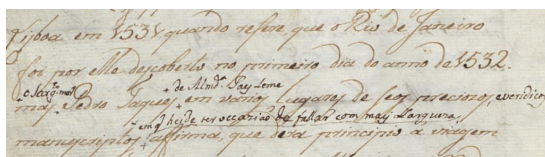 Lisboa em 1531 quando refere, que o Rio de Janeiro
foi por elle descoberto no primeiro dia do anno de 1532.
o Sarg.mor + de Almd.a Paes Leme
mas Pedro Taques + em varios lugares de seos preciozos, e veridicos
em q̃ hei de ter occazião de fallar com mais largura,
manuscriptos + affirma, que dera principio a viagem